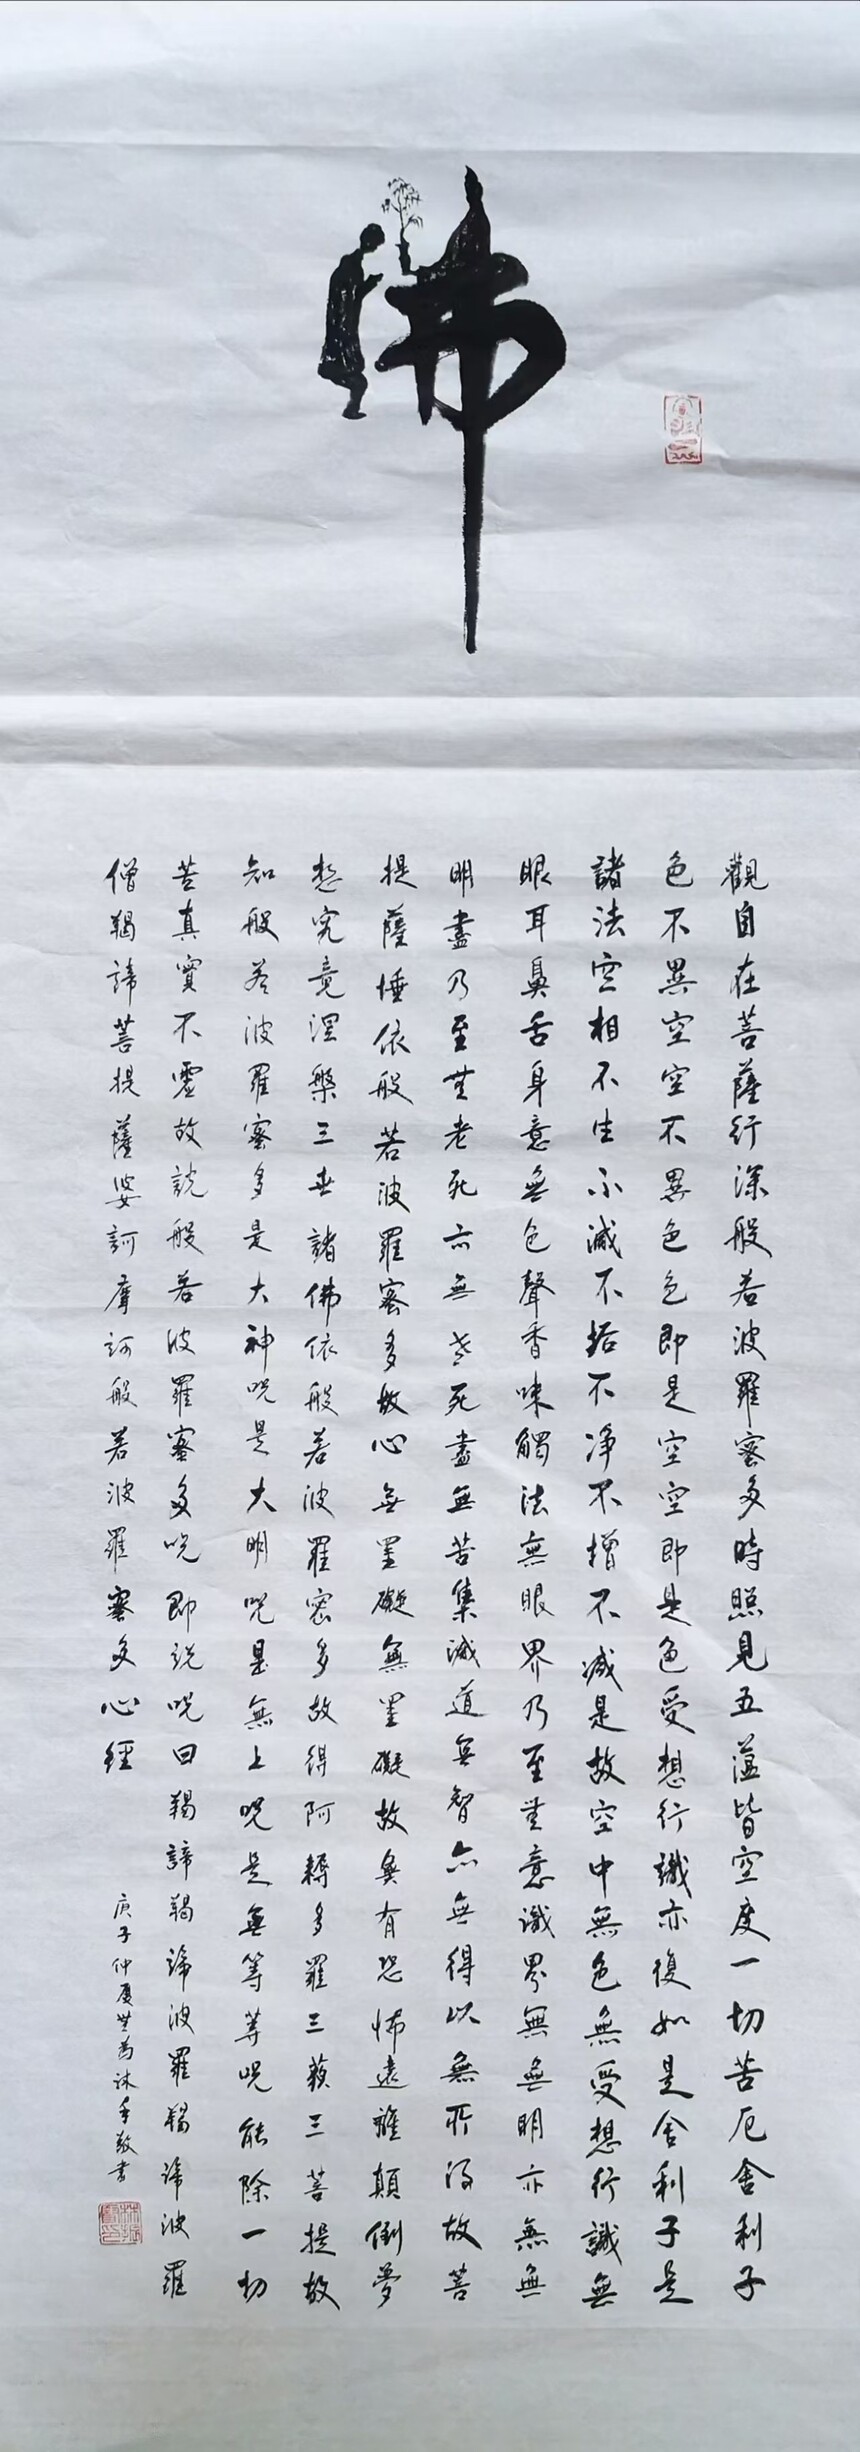 佛
觀自在菩薩行深般若波羅蜜多時照見五蘊皆空度一切苦厄舍利子
色不異空空不異色色即是空空即是色受想行識亦復如是舍利子是
諸法空相不生不滅不垢不净不增不減是故空中無色無受想行識無
眼耳鼻舌身意無色聲香味觸法無眼界乃至無意識界無無明亦無無
明盡乃至無老死亦無老死盡無苦集滅道無智亦無得以無所得故菩
提薩埵依般若波羅蜜多故心無罣礙無罣礙故無有恐怖遠離顛倒夢
想究竟涅槃三世諸佛依般若波羅密多故得阿耨多羅三藐三菩提故
知般若波羅蜜多是大神咒是大明咒是無上咒是無等等咒能除一切
苦真實不虛故說般若波羅蜜多咒即說咒曰羯諦羯諦波羅羯諦波羅
僧羯諦菩提薩婆訶摩訶般若波羅蜜多心經
庚子仲夏無為沐手敬書